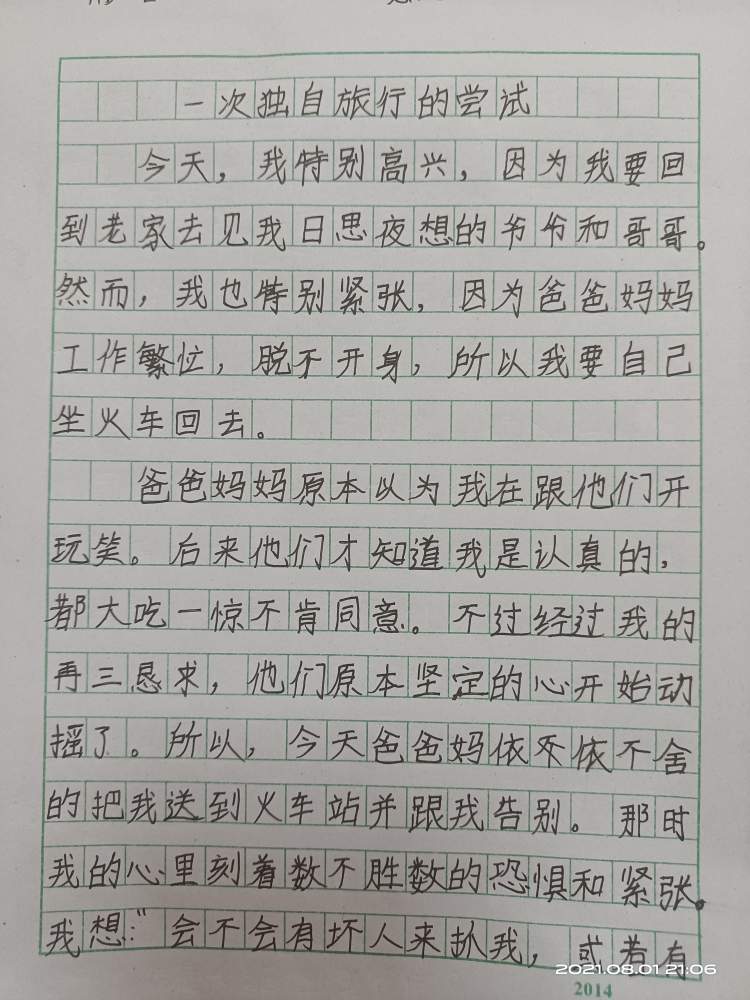 一次独自旅行的尝试
今天，我特别高兴，因为我要回
到老家去见我日思夜想的爷爷和哥哥。
然而，我也特别紧张，因为爸爸妈妈
工作繁忙，脱不开身，所以我要自己
坐火车回去。
爸爸妈妈原本以为我在跟他们开
玩笑。后来他们才知道我是认真的，
都大吃一惊不肯同意。不过经过我的
再三恳求，他们原本坚定的心开始动
摇了。所以，今天爸爸妈依依不舍
的把我送到火车站并跟我告别。那时
我的心里刻着数不胜数的恐惧和紧张。
我想：“会不会有坏人来扒我，或若有
2021.08.01 21:06
2014